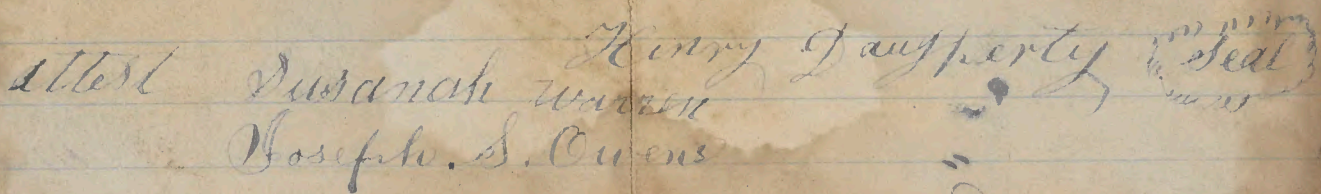 Henry Daugherty Seal
attest Susanah warren
Joseph. S. Owens